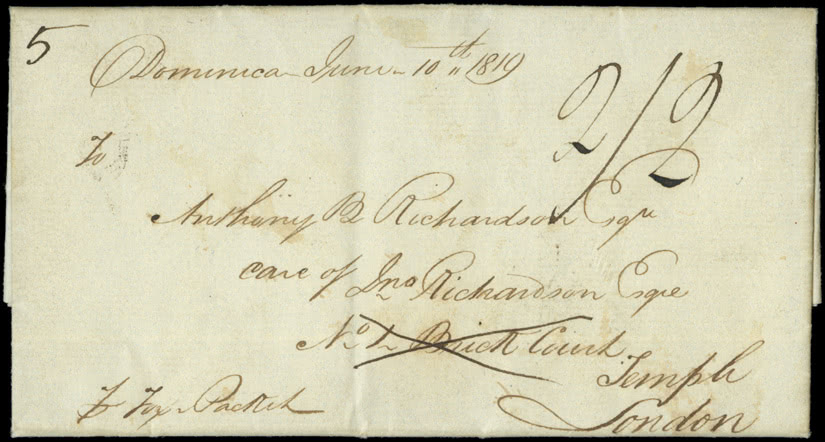 5
Dominica June 10th 1819
2/2
To
Anthony B Richardson Esqre
care of Jno Richardson Esqre
No 1 Brick Court
Temple
London
P Fox Packet